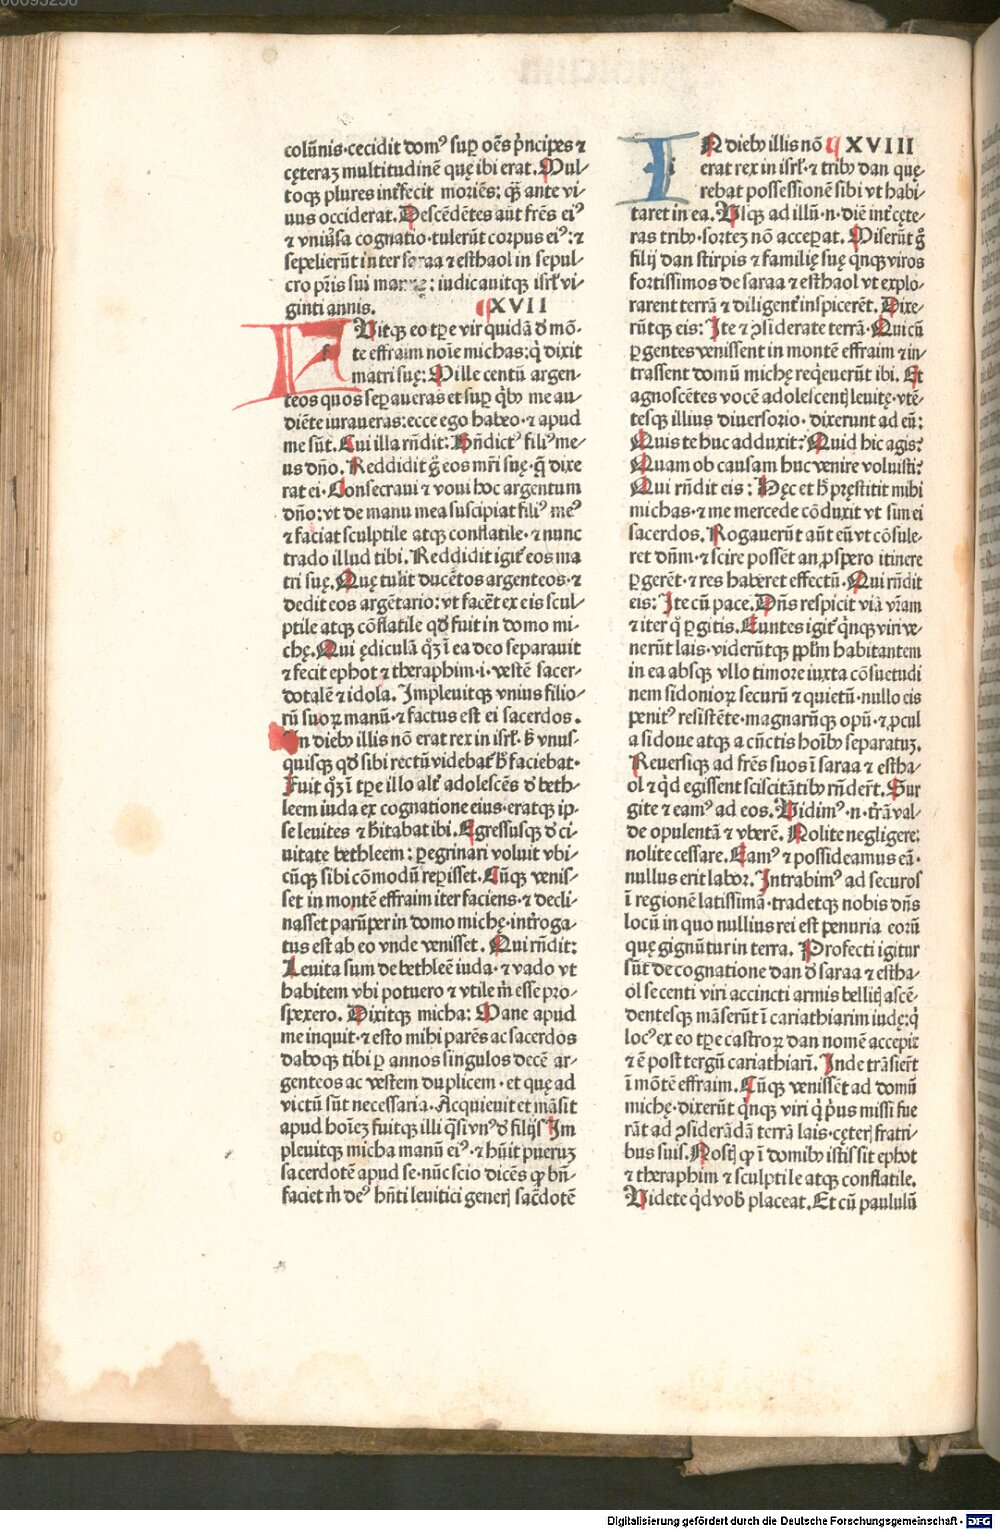 colūnis·cecidit domꝰ sup̱ oēs pͥncipes ⁊
cęteraꝫ multitudinē quę ibi erat. Mul/
toqꝫ plures int̾fecit moriēs: qͣ̄ ante vi/
uus occiderat. Descēdētes aūt fr̄es eiꝰ
⁊ vniũsa cognatio·tulerūt corpus eiꝰ: ⁊
sepelierūt inter saraa ⁊ esthaol in sepul/
cro pr̄is sui manue: iudicauitqꝫ isrl̄ vi/
ginti annis. ¶XVII
FUitqꝫ eo tp̄e vir quidā đ mō-
te effraim noīe michas: qͥ dixit
matri suę: Mille centū argen-
teos quos sep̱aueras et sup̱ qͥbꝫ me au/
diēte iuraueras: ecce ego habeo·⁊ apud
me sūt. Cui illa rn̄dit: Bn̄dictꝰ filiꝰ me/
us dn̄o. Reddidit gͦ eos mr̄i suę·q̄ dixe
rat ei·Consecraui ⁊ voui hoc argentum
dn̄o: vt de manu mea suscipiat filiꝰ meꝰ
⁊ faciat sculptile atqꝫ conflatile·⁊ nunc
trado illud tibi. Reddidit igit᷑ eos ma
tri suę. Quę tulit ducētos argenteos·⁊
dedit eos argētario: vt facēt ex eis scul/
ptile atqꝫ cōflatile qđ fuit in domo mi-
chę. Qui ędiculā qͦꝫ ī ea deo separauit
⁊ fecit ephot ⁊ theraphim·i·vestē sacer-
dotalē ⁊ idola. Impleuitqꝫ vnius filio/
rū suoꝝ manū·⁊ factus est ei sacerdos.
In diebꝫ illis nō erat rex in isrl̄·sꝫ vnus-
quisqꝫ qđ sibi rectū videbat᷑ hͦ faciebat·
Fuit qͦꝫ ī tp̄e illo alt᷑ adolescēs đ beth-
leem iuda ex cognatione eius·eratqꝫ ip-
se leuites ⁊ hītabat ibi. Egressusqꝫ đ ci-
uitate bethleem: p̱egrinari voluit vbi-
cūqꝫ sibi cōmodū rep̱isset. Cūqꝫ venis-
set in montē effraim iter faciens·⁊ decli-
nasset parūper in domo michę·int̾roga-
tus est ab eo vnde venisset. Qui rn̄dit:
Leuita sum de bethleē iuda·⁊ vado vt
habitem vbi potuero ⁊ vtile m̄ esse pro-
spexero. Dixitqꝫ micha: Mane apud
me inquit·⁊ esto mihi parēs ac sacerdos
daboqꝫ tibi p̱ annos singulos decē ar-
genteos ac vestem duplicem·et quę ad
victū sūt necessaria·Acquieuit et māsit
apud hoīeꝫ fuitqꝫ illi qͣsi vnꝰ đ filijs·Im
pleuitqꝫ micha manū eiꝰ·⁊ hūit pueruꝫ
sacerdotē apud se·nūc scio dicēs qꝙ bn̄-
faciet m̄ deꝰ hn̄ti leuitici generꝭ sac̾dotē
IN diebꝫ illis nō ¶XVIII
erat rex in isrl̄·⁊ tribꝫ dan quę-
rebat possessionē sibi vt habi/
taret in ea. Usqꝫ ad illū·n·diē int̾ cęte-
ras tribꝫ·sorteꝫ nō accep̱at. Miserūt gͦ
filij dan stirpis ⁊ familię suę qͥnqꝫ viros
fortissimos de saraa ⁊ esthaol vt explo-
rarent terrā ⁊ diligent᷑ inspicerēt. Dixe-
rūtqꝫ eis: Ite ⁊ ꝯsiderate terrā·Qui cū
p̱gentes venissent in montē effraim ⁊ in-
trassent domū michę reqͥeuerūt ibi. Et
agnoscētes vocē adolescentꝭ leuitę·vtē-
tesqꝫ illius diuersorio·dixerunt ad eū:
Quis te huc adduxit? Quid hic agis?
Quam ob causam huc venire voluisti?
Qui rn̄dit eis: Hęc et hͦ pręstitit mihi
michas·⁊ me mercede cōduxit vt sim ei
sacerdos. Rogauerūt aūt eū vt cōsule-
ret dn̄m·⁊ scire possēt an ꝓspero itinere
p̱gerēt·⁊ res haberet effectū. Qui rn̄dit
eis: Ite cū pace. Dn̄s respicit viā vr̄am
⁊ iter qͦ p̱gitis. Euntes igit᷑ qͥnqꝫ viri ve-
nerūt lais·viderūtqꝫ pp̄lm habitantem
in ea absqꝫ vllo timore iuxta cōsuetudi
nem sidonioꝝ securū ⁊ quietū·nullo eis
penitꝰ resistēte·magnarūqꝫ opū·⁊ ꝓcul
a sidone atqꝫ a cūctis hoībꝫ separatuꝫ.
Reuersiqꝫ ad fr̄es suos ī saraa ⁊ estha-
ol ⁊ qͥd egissent sciscitātibꝫ rn̄derūt. Sur
gite ⁊ eamꝰ ad eos. Uidimꝰ·n·tr̄ā val-
de opulentā ⁊ vberē. Nolite negligere:
nolite cessare. Eamꝰ ⁊ possideamus eā·
nullus erit labor. Intrabimꝰ ad securos
ī regionē latissimā·tradetqꝫ nobis dn̄s
locū in quo nullius rei est penuria eorū
quę gignūtur in terra. Profecti igitur
sūt de cognatione dan đ saraa ⁊ estha-
ol sexcenti viri accincti armis bellicꝭ ascē-
dentesqꝫ māserūt ī cariathiarim iudę: qͥ
locꝰ ex eo tp̄e castroꝝ dan nomē accepit
⁊ ē post tergū cariathiarī. Inde trāsierūt
ī mōtē effraim. Cūqꝫ venissēt ad domū
michę·dixerūt qͥnqꝫ viri qͥ pͥus missi fue
rāt ad ꝯsiderādā terrā lais·cęterꝭ fratri-
bus suis. Nostꝭ qꝙ ī domibꝫ istis sit ephot
⁊ theraphim ⁊ sculptile atqꝫ conflatile.
Uidete qͥd vob̄ placeat. Et cū paululū
Digitalisierung gefördert durch die Deutsche Forschungsgemeinschaft - DFG